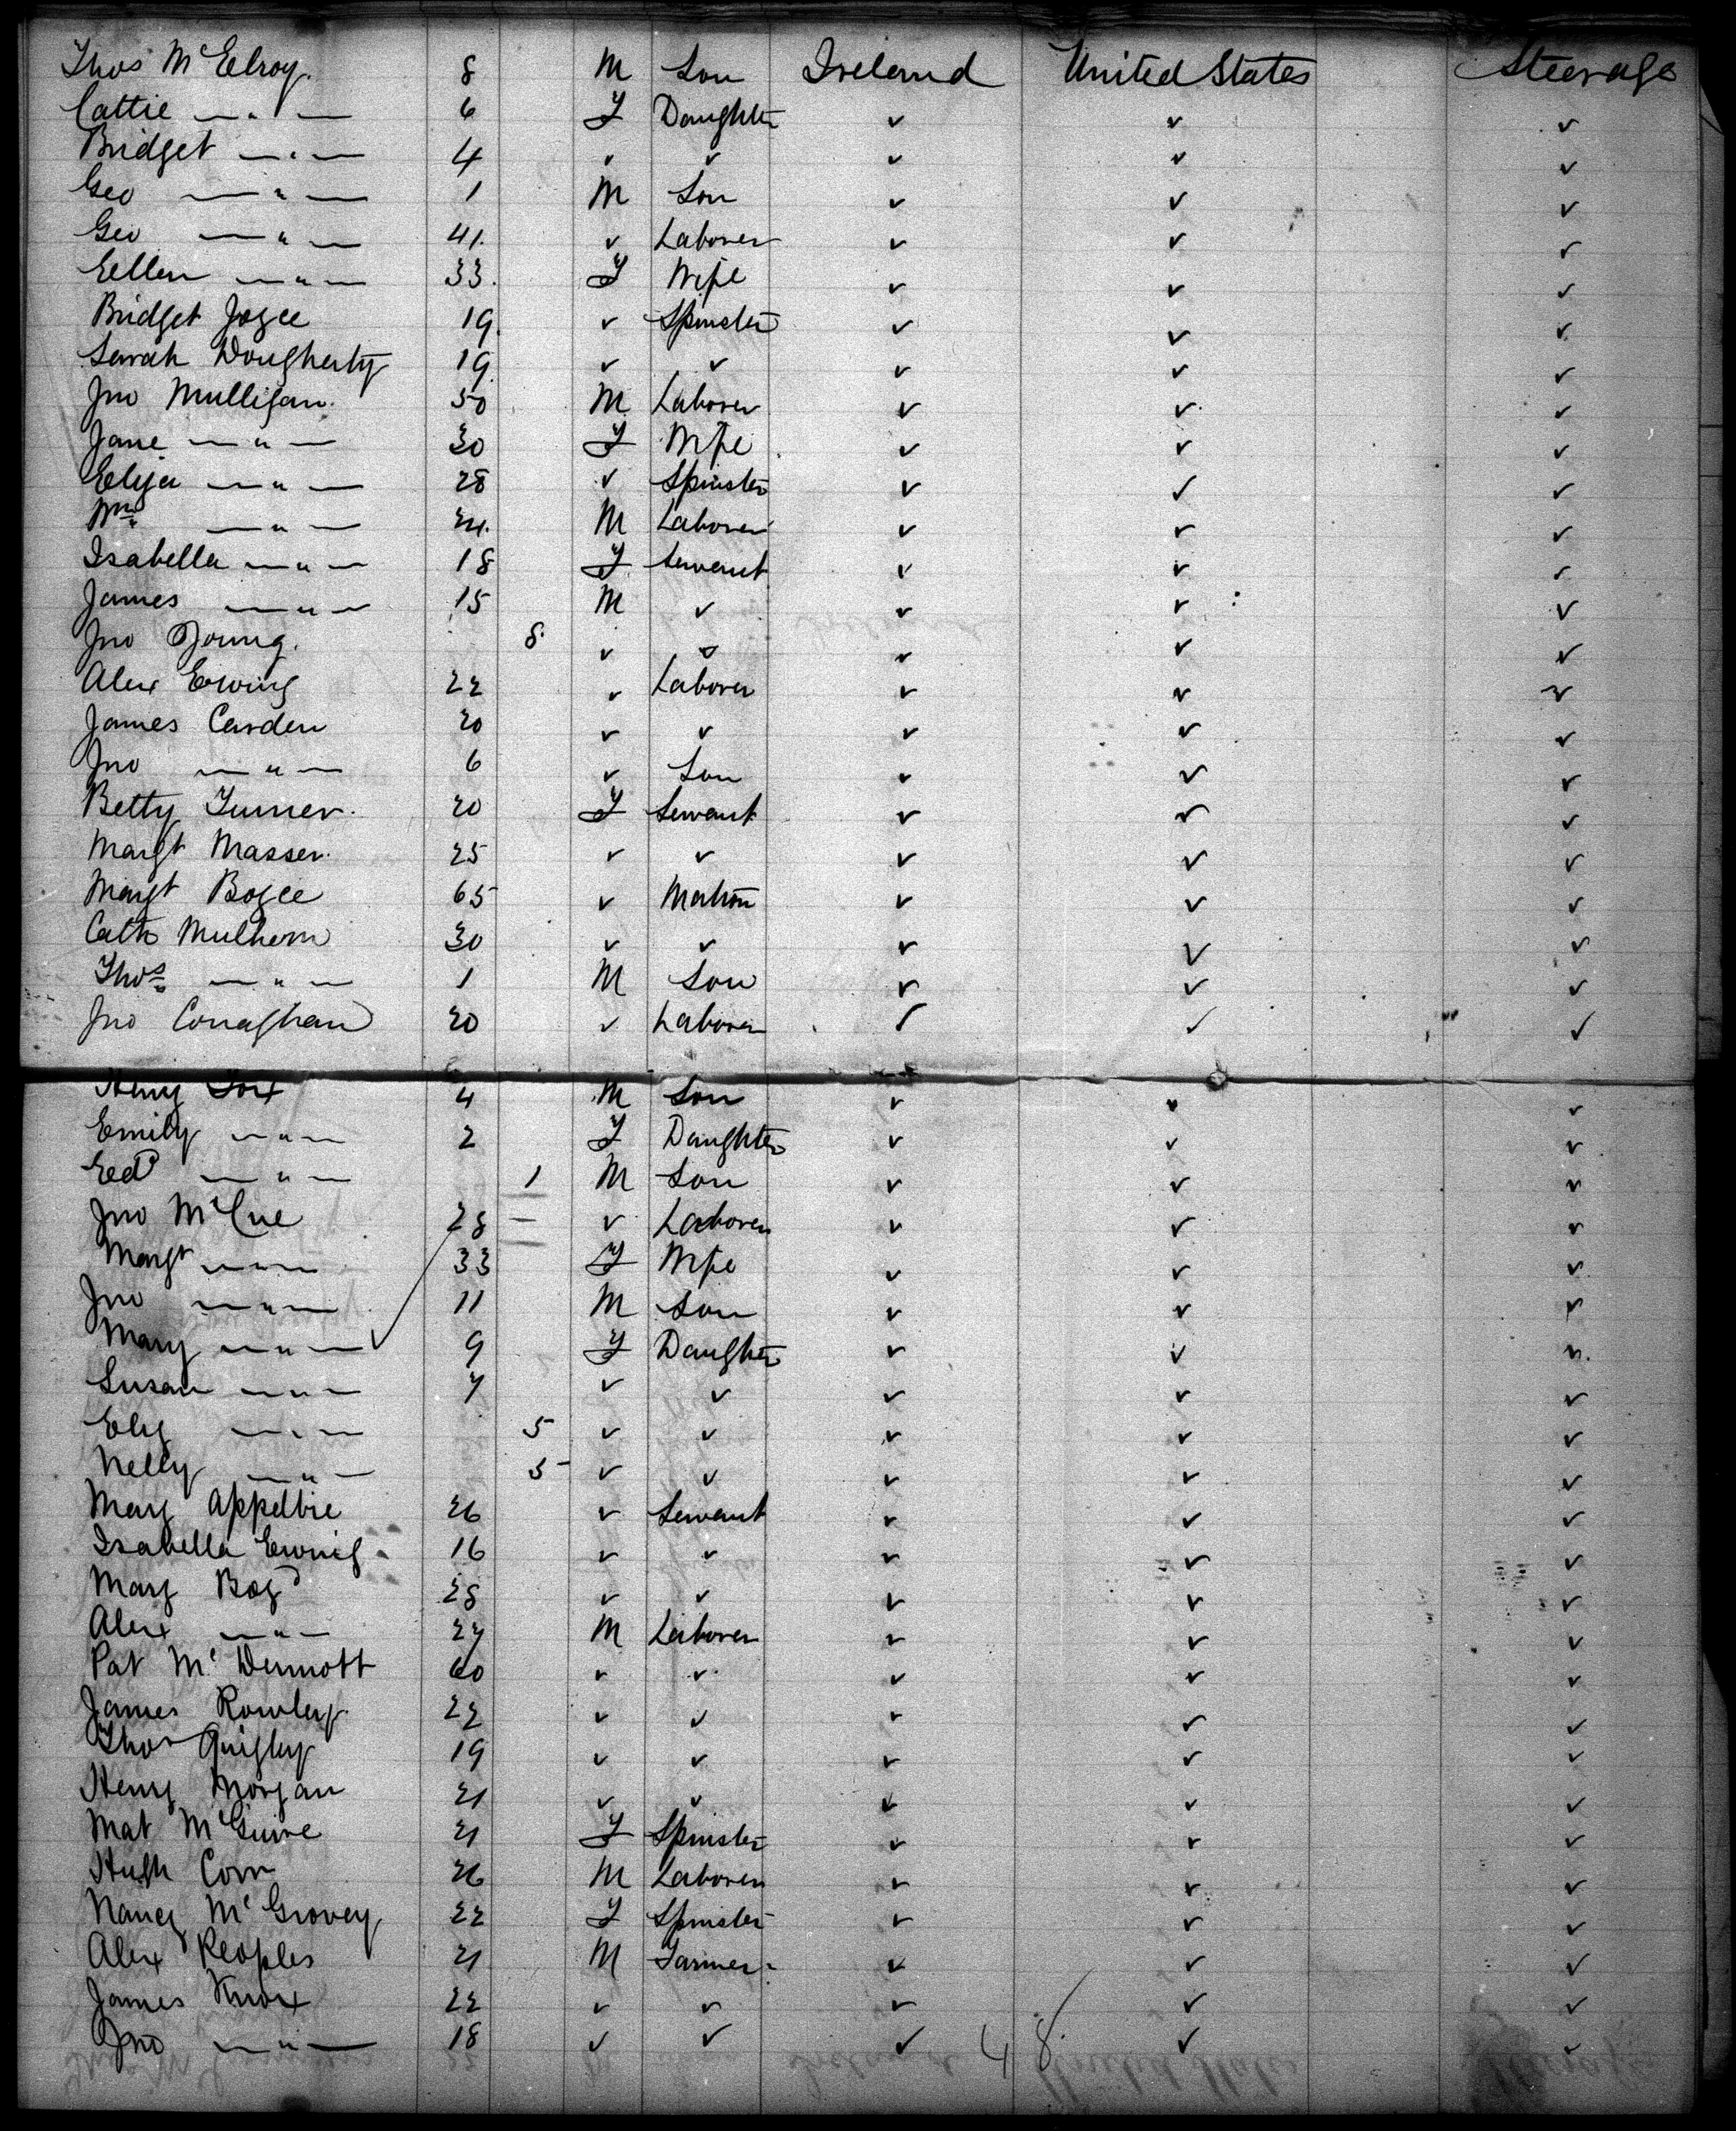 Thos McElroy. 8 M Son Ireland United States Steerage
Cattie — " — 6 F Daughter ✓ ✓ ✓
Bridget — " — 4 ✓ ✓ ✓ ✓ ✓
Geo — " — 1 M Son ✓ ✓ ✓
Geo — " — 41. ✓ Laborer ✓ ✓ ✓
Ellen — " — 33. F Wife ✓ ✓ ✓
Bridget Joyce 19. ✓ Spinster ✓ ✓ ✓
Sarah Dougherty 19. ✓ ✓ ✓ ✓ ✓
Jno Mulligan. 50 M Laborer ✓ ✓ ✓
Jane — " — 30 F Wife ✓ ✓ ✓
Eliza — " — 28 ✓ Spinster ✓ ✓ ✓
Wm — " — 24. M Laborer ✓ ✓ ✓
Isabella — " — 18 F Servant ✓ ✓ ✓
James — " — 15 M ✓ ✓ ✓ ✓
Jno Young. 8 ✓ ✓ ✓ ✓
Alex Ewing 22 ✓ Laborer ✓ ✓ ✓
James Carden 20 ✓ ✓ ✓ ✓ ✓
Jno — " — 6 ✓ Son ✓ ✓ ✓
Betty Turner. 20 F Servant ✓ ✓ ✓
Margt Masser. 25 ✓ ✓ ✓ ✓ ✓
Margt Boyce 65 ✓ Matron ✓ ✓ ✓
Cath Mulhern 30 ✓ ✓ ✓ ✓ ✓
Thos — " — 1 M Son ✓ ✓ ✓
Jno Conaghan 20 ✓ Laborer ✓ ✓ ✓
Henry 4 M Son ✓ ✓ ✓
Emily — " — 2 F Daughter ✓ ✓ ✓
Ed — " — 1 M Son ✓ ✓ ✓
Jno McCue 28 — ✓ Laborer ✓ ✓ ✓
Margt — " — 33 F Wife ✓ ✓ ✓
Jno — " — 11 M Son ✓ ✓ ✓
Mary — " — ✓ 9 F Daughter ✓ ✓ ✓
Susan — " — 7 ✓ ✓ ✓ ✓ ✓
Eliz — " — 5 ✓ ✓ ✓ ✓ ✓
Nelly — " — 5 ✓ ✓ ✓ ✓ ✓
Mary Appelbie 26 ✓ Servant ✓ ✓ ✓
Isabella Ewing 16 ✓ ✓ ✓ ✓ ✓
Mary Boyd 28 ✓ ✓ ✓ ✓ ✓
Alex — " — 27 M Laborer ✓ ✓ ✓
Pat McDermott 60 ✓ ✓ ✓ ✓ ✓
James Rowley. 22 ✓ ✓ ✓ ✓ ✓
Thos Quigley 19 ✓ ✓ ✓ ✓ ✓
Henry Morgan 21 ✓ ✓ ✓ ✓ ✓
Mat McGuire 21 F Spinster ✓ ✓ ✓
Hugh Corr 26 M Laborer ✓ ✓ ✓
Nancy McGrovey 22 F Spinster ✓ ✓ ✓
Alex Peoples 21 M Farmer ✓ ✓ ✓
James Knox 22 ✓ ✓ ✓ ✓ ✓
Jno — " — 18 ✓ ✓ ✓ ✓ ✓
48